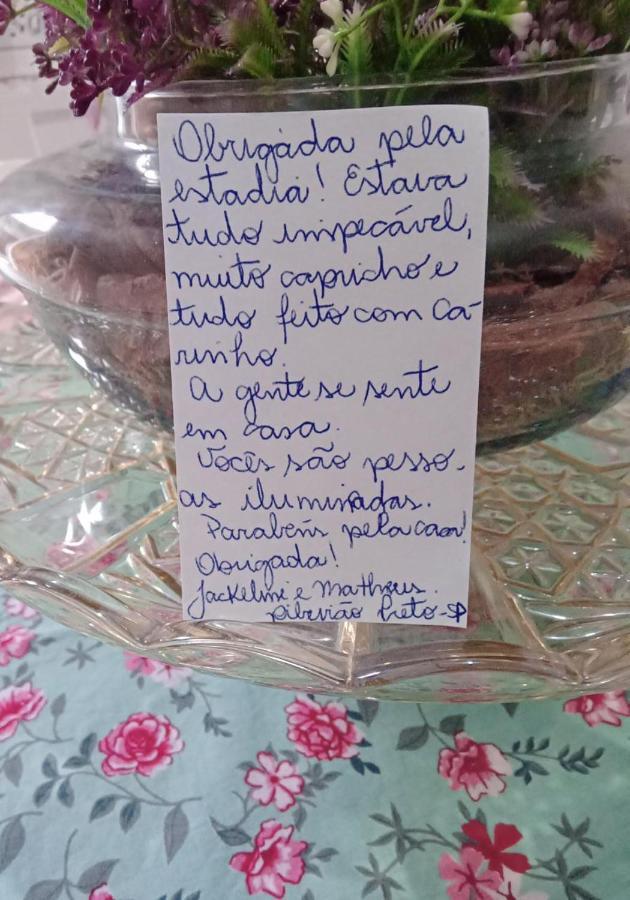 Obrigada pela
estadia! Estava
tudo impecável,
muito capricho e
tudo feito com ca-
rinho.
A gente se sente
em casa.
Vocês são pesso-
as iluminadas.
Parabéns pela casa!
Obrigada!
Jackeline e Matheus.
Ribeirão Preto-SP